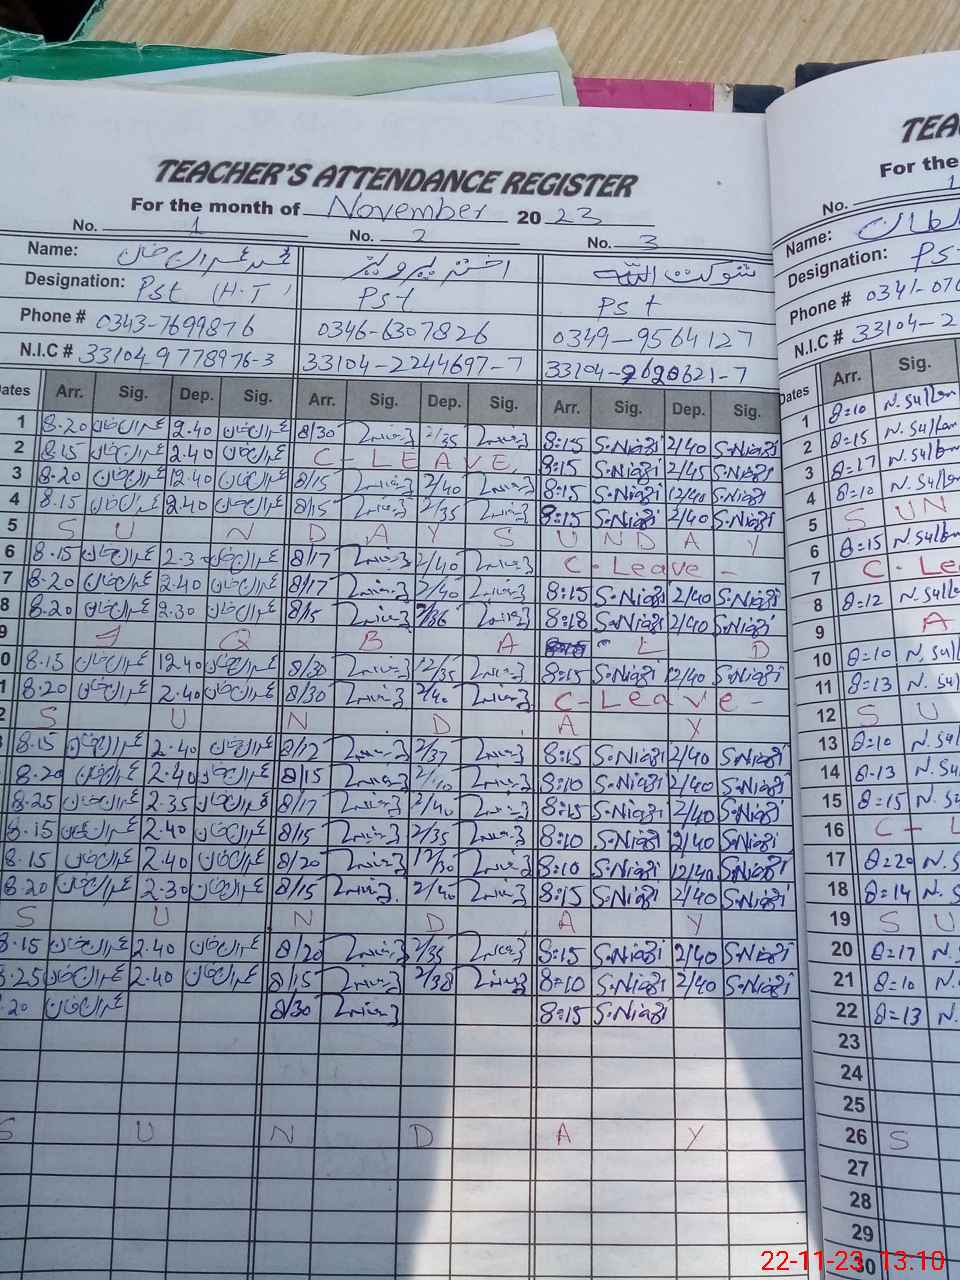 TEACHER'S ATTENDANCE REGISTER
For the month of November 20 23
No. 1 No. 2 No. 3
Name: محمد عمران خان اختر پرویز شوکت اللہ
Designation: Pst (H.T) Pst Pst
Phone # 0343-7699876 0346-6307826 0349-9564127
N.I.C # 33104 9778976-3 33104-2244697-7 33104-9620621-7
Dates Arr. Sig. Dep. Sig. Arr. Sig. Dep. Sig. Arr. Sig. Dep. Sig.
1 8.20 عمران خان 2.40 عمران خان 8/30 2/35 8:15 S.Niazi 2/40 S.Niazi
2 8.15 عمران خان 2.40 عمران خان C-LEAVE 8:15 S.Niazi 2/45 S.Niazi
3 8.20 عمران خان 12.40 عمران خان 8/15 2/40 8:15 S.Niazi 12/40 S.Niazi
4 8.15 عمران خان 2.40 عمران خان 8/15 2/35 8:15 S.Niazi 2/40 S.Niazi
5 S U N D A Y S U N D A Y
6 8.15 عمران خان 2.3 عمران خان 8/17 2/40 C-Leave-
7 8.20 عمران خان 2.40 عمران خان 8/17 2/40 8:15 S.Niazi 2/40 S.Niazi
8 8.20 عمران خان 2.30 عمران خان 8/15 2/36 8:18 S.Niazi 2/40 S.Niazi
9 I Q B A L D
0 8.15 عمران خان 12.40 عمران خان 8/30 12/35 8:15 S.Niazi 12/40 S.Niazi
1 8.20 عمران خان 2.40 عمران خان 8/30 2/40 C-Leave-
2 S U N D A Y
8.15 عمران خان 2.40 عمران خان 8/12 2/37 8:15 S.Niazi 2/40 S.Niazi
8.20 عمران خان 2.40 عمران خان 8/15 8:10 S.Niazi 2/40 S.Niazi
8.25 عمران خان 2.35 عمران خان 8/17 2/40 8:15 S.Niazi 2/40 S.Niazi
8.15 عمران خان 2.40 عمران خان 8/15 2/35 8:10 S.Niazi 2/40 S.Niazi
8.15 عمران خان 2.40 عمران خان 8/20 12/30 8:10 S.Niazi 12/40 S.Niazi
8.20 عمران خان 2.30 عمران خان 8/15 2/40 8:15 S.Niazi 2/40 S.Niazi
S U N D A Y
8.15 عمران خان 2.40 عمران خان 8/20 2/35 8:15 S.Niazi 2/40 S.Niazi
8.25 عمران خان 2.40 عمران خان 8/15 2/38 8:10 S.Niazi 2/40 S.Niazi
.20 عمران خان 8/30 8:15 S.Niazi
S U N D A Y
TEA
For the
No. 1
Name: سلطان
Designation: Ps
Phone # 0341-076
N.I.C # 33104-2
Dates Arr. Sig.
1 8=10 N.Sultan
2 8=15 N.Sultan
3 8=17 N.Sultan
4 8=10 N.Sultan
5 S UN
6 8=15 N.Sultan
7 C-Le
8 8=12 N.Sulta
9 A
10 8=10 N.Sul
11 8=13 N.Sul
12 S U
13 8=10 N.Sul
14 8-13 N.Su
15 8=15 N.Su
16 C-L
17 8=20 N.S
18 8=14 N.S
19 S U
20 8=17 N.S
21 8=10 N.
22 8=13 N.
23
24
25
26 S
27
28
29
30
22-11-23 13.10